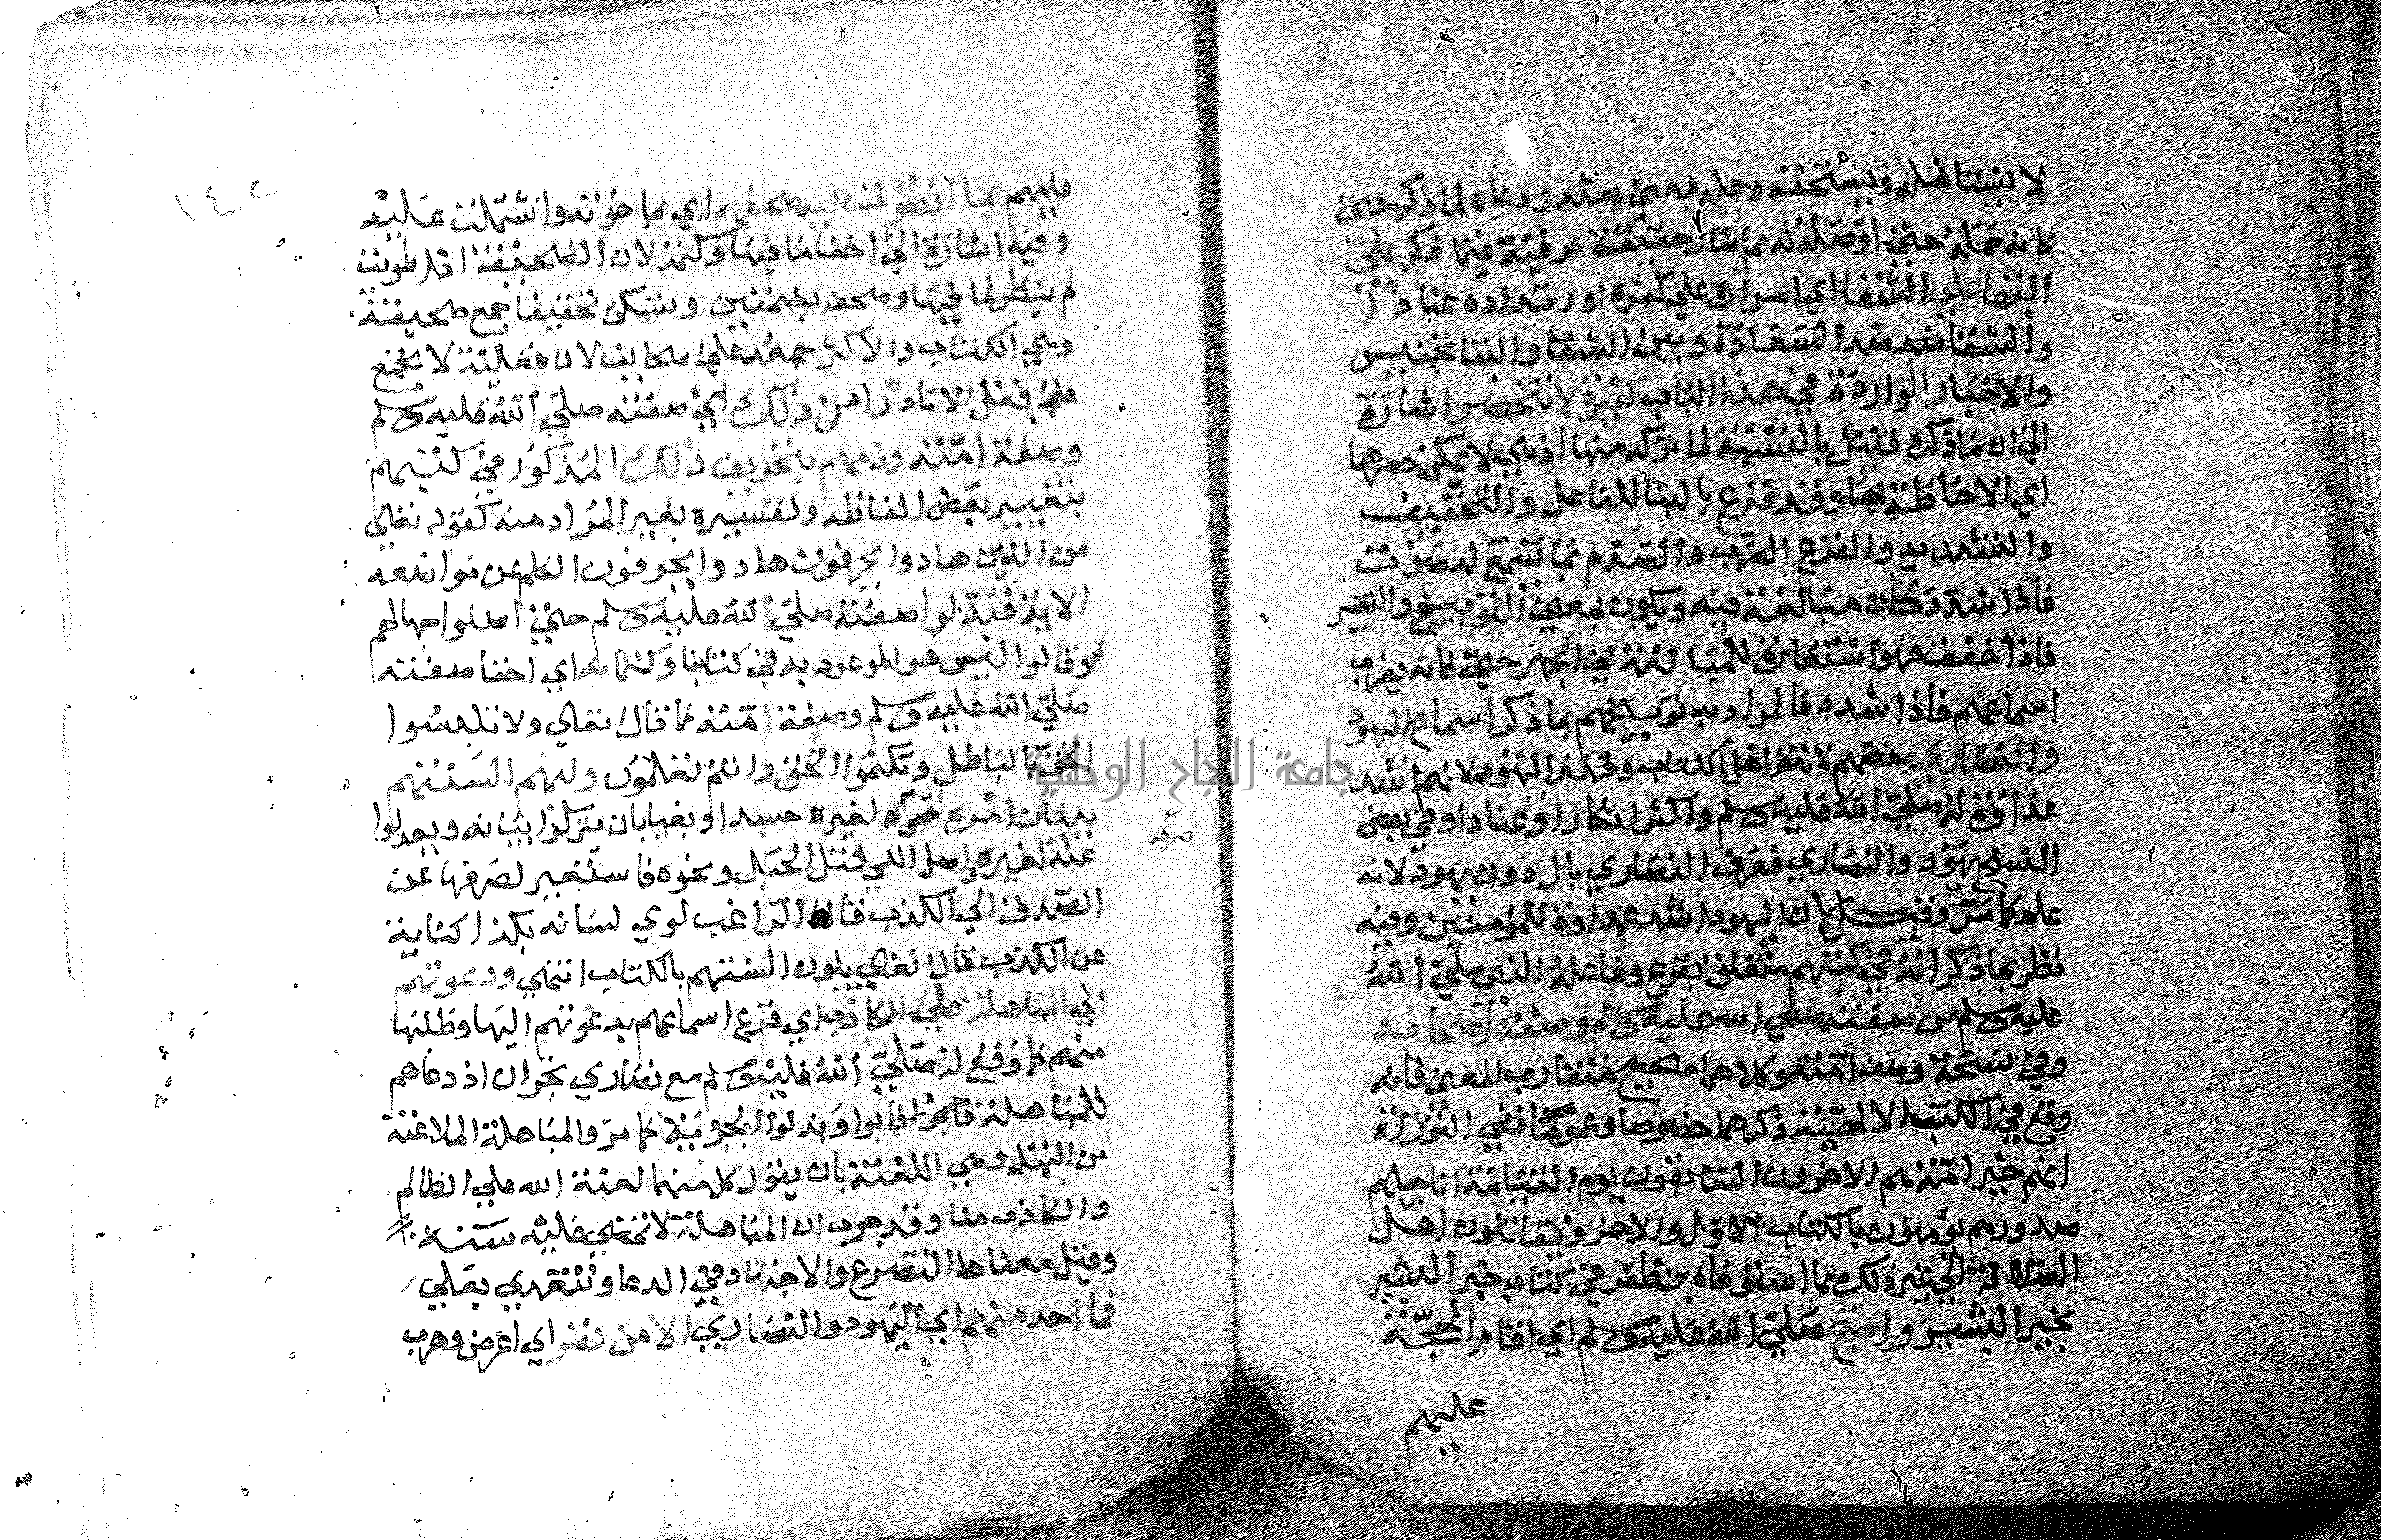 لا يستاهله ويستحقه وحمله بمعنى بعثه ودعاه لما ذكر حتى
كانه حمله حتى اوصله له ثم صار حقيقة عرفية فيما ذكر على
البقا على الشقا اي اصراره على كفره او ارتداده عنادا
والشقا ضد السعادة وبين الشقا والبقا تجنيس
والاخبار الواردة في هذا الباب كثيرة لا تنحصر اشارة
الى ان ما ذكره قليل بالنسبة لما تركه منها اذ هي لا يمكن حصرها
اي الاحاطة بها وقد قرع بالبنا للفاعل والتخفيف
والتشديد والقرع الضرب والصدم بما تسمع له صوت
فاذا شدد كان مبالغة فيه ويكون بمعنى التوبيخ والتعيير
فاذا خفف فهو استعارة للمبالغة في الجهر حتى كانه يضرب
اسماعهم فاذا شدد فالمراد به توبيخهم بما ذكر اسماع اليهود
والنصارى خصهم لانهم اهل الكتاب وقدم اليهود لانهم اشد
عداوة له صلى الله عليه وسلم واكثر انكارا وعنادا وفي بعض
النسخ يهود والنصارى فعرف النصارى بال دون يهود لانه
علم كما مر وقيل لان اليهود اشد عداوة للمؤمنين وفيه
نظر بما ذكر انه في كتبهم متعلق بقرع وفاعله النبي صلى الله
عليه وسلم من صفته صلى الله عليه وسلم وصفة اصحابه
وفي نسخة وصف امته وكلاهما صحيح متقارب المعنى فانه
وقع في الكتب الالهية ذكرهما خصوصا وعموما ففي التوراة
انهم خير امة هم الاخرون السابقون يوم القيامة اناجيلهم
صدورهم يؤمنون بالكتاب الاول والاخر ويقاتلون اهل
الضلالة الى غير ذلك مما استوفاه بن ظفر في كتاب خير البشر
بخير البشر واحتج صلى الله عليه وسلم اي اقام الحجة
عليهم
١٤٢
عليهم بما انطوت عليه صحفهم اي بما حوته واشتملت عليه
وفيه اشارة الى اخفا ما فيها وكتمه لان الصحيفة اذا طويت
لم ينظر لما فيها وصحف بضمتين وتسكن تخفيفا جمع صحيفة
وهي الكتاب والاكثر جمعه على صحايف لان فعيلة لا تجمع
على فعل الا نادرا من ذلك اي صفته صلى الله عليه وسلم
وصفة امته وذمهم بتحريف ذلك المذكور في كتبهم
بتغيير بعض الفاظه وتفسيره بغير المراد منه كقوله تعالى
من الذين هادوا يحرفون هادوا يحرفون الكلم عن مواضعه
الاية فبدلوا صفته صلى الله عليه وسلم حتى اضلوا جهالهم
وقالوا ليس هو الموعود به في كتابنا وكتمانه اي اخفا صفته
صلى الله عليه وسلم وصفة امته كما قال تعالى ولا تلبسوا
الحق بالباطل وتكتموا الحق وانتم تعلمون وليهم السنتهم
ببيان امره لغيره حسدا وبغيا بان يتركوا بيانه ويعدلوا
صرفه
عنه لغيره واصل اللي فتل الحبل ونحوه فاستعير لصرفها عن
الصدق الى الكذب قال الراغب لوى لسانه بكذا كناية
عن الكذب قال تعالى يلوون السنتهم بالكتاب انتهى ودعوتهم
الى المباهلة على الكاذب اي قرع اسماعهم بدعوتهم اليها وطلبها
منهم كما وقع له صلى الله عليه وسلم مع نصارى نجران اذ دعاهم
للمباهلة فابوا وبذلوا الجزية كما مر والمباهلة الملاعنة
من البهل وهي اللعنة بان يقول كل منهما لعنة الله على الظالم
والكاذب منا وقد جرب ان المباهلة لا تمضي عليه سنة
وقيل معناها التضرع والاجتهاد في الدعا وتتعدى بعلى
فما احد منهم اي اليهود والنصارى الا من نفر اي اعرض وهرب
جامعة النجاح الوطنية